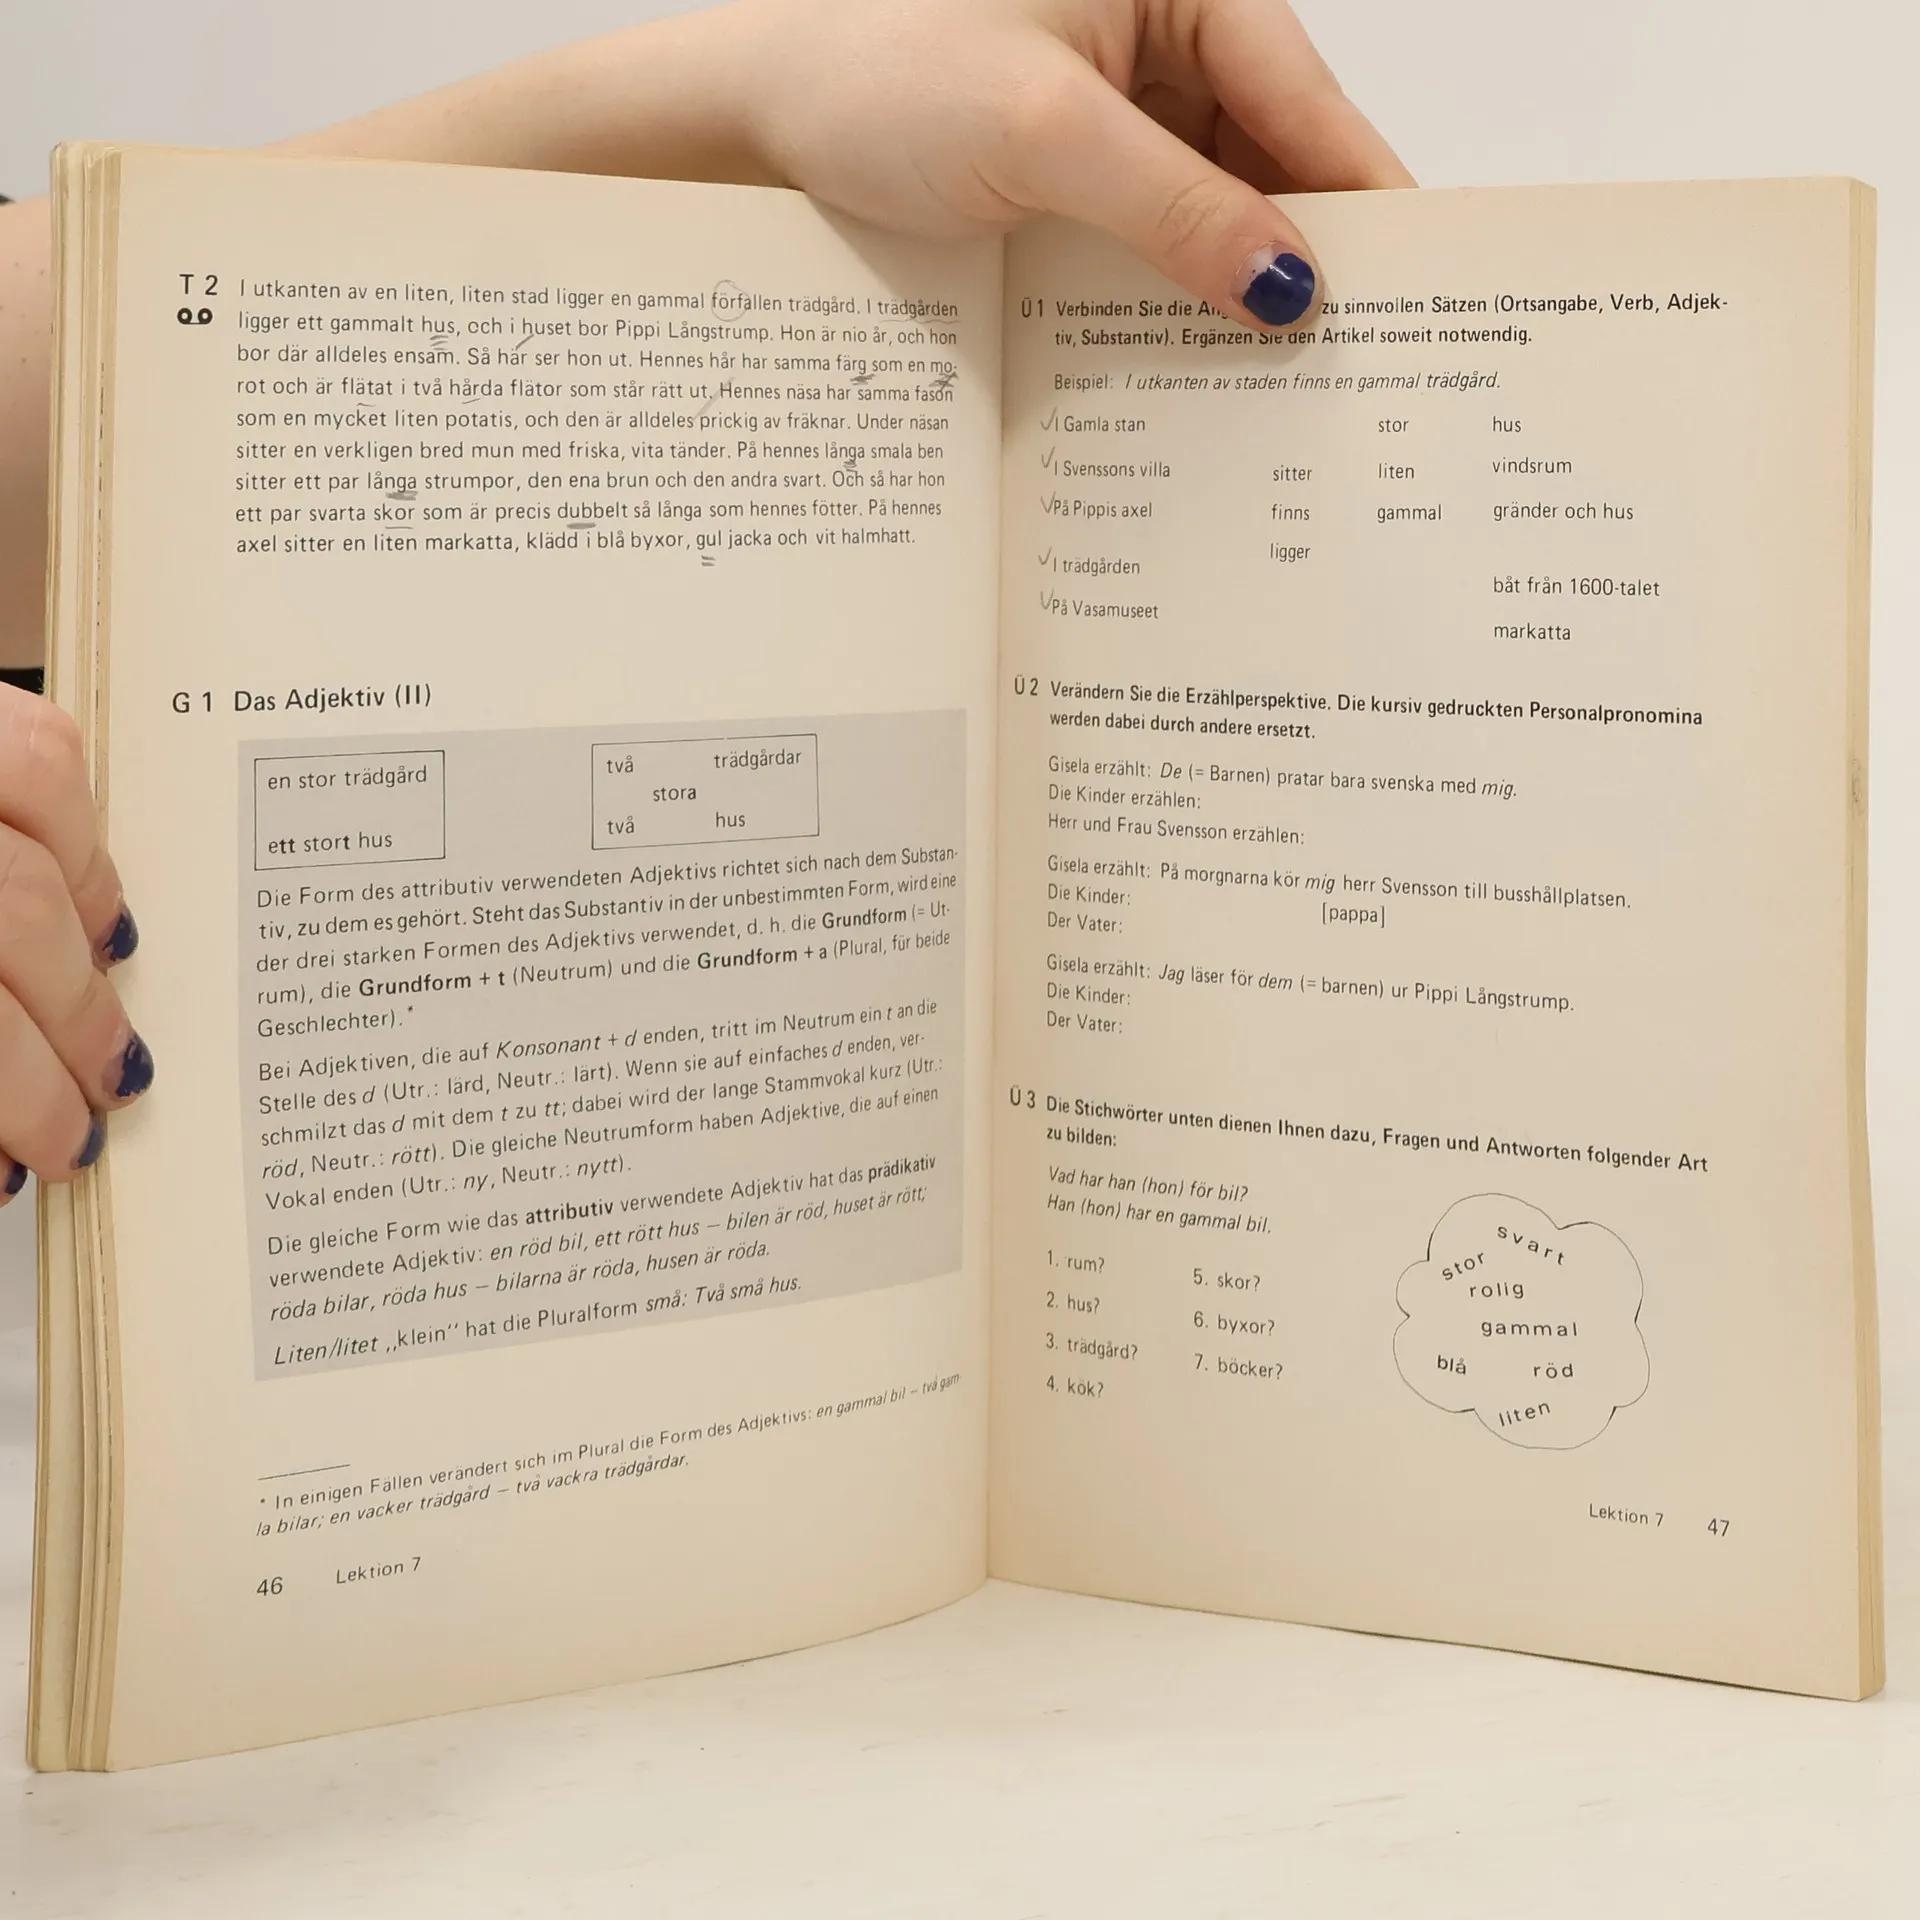 T 2 I utkanten av en liten, liten stad ligger en gammal förfallen trädgård. I trädgården
ligger ett gammalt hus, och i huset bor Pippi Långstrump. Hon är nio år, och hon
bor där alldeles ensam. Så här ser hon ut. Hennes hår har samma färg som en mo-
rot och är flätat i två hårda flätor som står rätt ut. Hennes näsa har samma fason
som en mycket liten potatis, och den är alldeles prickig av fräknar. Under näsan
sitter en verkligen bred mun med friska, vita tänder. På hennes långa smala ben
sitter ett par långa strumpor, den ena brun och den andra svart. Och så har hon
ett par svarta skor som är precis dubbelt så långa som hennes fötter. På hennes
axel sitter en liten markatta, klädd i blå byxor, gul jacka och vit halmhatt.
G 1 Das Adjektiv (II)
en stor trädgård
ett stort hus
två trädgårdar
stora
två hus
Die Form des attributiv verwendeten Adjektivs richtet sich nach dem Substan-
tiv, zu dem es gehört. Steht das Substantiv in der unbestimmten Form, wird eine
der drei starken Formen des Adjektivs verwendet, d. h. die Grundform (= Ut-
rum), die Grundform + t (Neutrum) und die Grundform + a (Plural, für beide
Geschlechter).*
Bei Adjektiven, die auf Konsonant + d enden, tritt im Neutrum ein t an die
Stelle des d (Utr.: lärd, Neutr.: lärt). Wenn sie auf einfaches d enden, ver-
schmilzt das d mit dem t zu tt; dabei wird der lange Stammvokal kurz (Utr.:
röd, Neutr.: rött). Die gleiche Neutrumform haben Adjektive, die auf einen
Vokal enden (Utr.: ny, Neutr.: nytt).
Die gleiche Form wie das attributiv verwendete Adjektiv hat das prädikativ
verwendete Adjektiv: en röd bil, ett rött hus – bilen är röd, huset är rött;
röda bilar, röda hus – bilarna är röda, husen är röda.
Liten/litet ,,klein'' hat die Pluralform små: Två små hus.
* In einigen Fällen verändert sich im Plural die Form des Adjektivs: en gammal bil – två gam-
la bilar; en vacker trädgård – två vackra trädgårdar.
46 Lektion 7
Ü 1 Verbinden Sie die zu sinnvollen Sätzen (Ortsangabe, Verb, Adjek-
tiv, Substantiv). Ergänzen Sie den Artikel soweit notwendig.
Beispiel: I utkanten av staden finns en gammal trädgård.
I Gamla stan stor hus
I Svenssons villa sitter liten vindsrum
På Pippis axel finns gammal gränder och hus
ligger
I trädgården båt från 1600-talet
På Vasamuseet markatta
Ü 2 Verändern Sie die Erzählperspektive. Die kursiv gedruckten Personalpronomina
werden dabei durch andere ersetzt.
Gisela erzählt: De (= Barnen) pratar bara svenska med mig.
Die Kinder erzählen:
Herr und Frau Svensson erzählen:
Gisela erzählt: På morgnarna kör mig herr Svensson till busshållplatsen.
Die Kinder: [pappa]
Der Vater:
Gisela erzählt: Jag läser för dem (= barnen) ur Pippi Långstrump.
Die Kinder:
Der Vater:
Ü 3 Die Stichwörter unten dienen Ihnen dazu, Fragen und Antworten folgender Art
zu bilden:
Vad har han (hon) för bil?
Han (hon) har en gammal bil.
1. rum? 5. skor?
2. hus? 6. byxor?
3. trädgård? 7. böcker?
4. kök?
svart
stor
rolig
gammal
blå röd
liten
Lektion 7 47